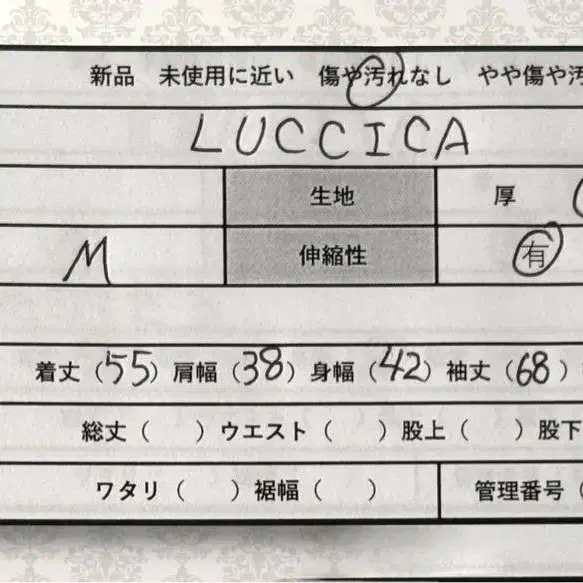 新品 未使用に近い 傷や汚れなし やや傷や汚
LUCCICA
生地 厚
M 伸縮性 有
着丈（55）肩幅（38）身幅（42）袖丈（68）
総丈（ ）ウエスト（ ）股上（ ）股下
ワタリ（ ）裾幅（ ） 管理番号（